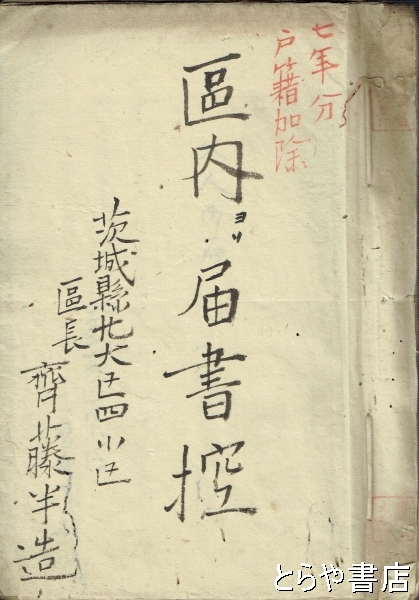 七年分
戸籍加除
區内ヨリ届書控
茨城縣北大区四小区
區長 齊藤半造
とらや書店